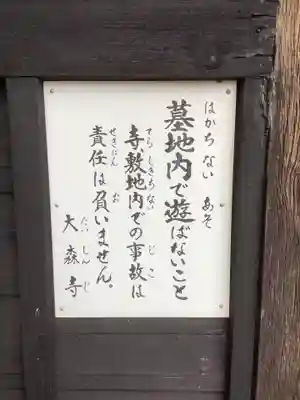 はかちない あそ
墓地内で遊ばないこと
てら しきちない じこ
寺、敷地内での事故は
せきにん お
責任は負いません。
たいしんじ
大森寺